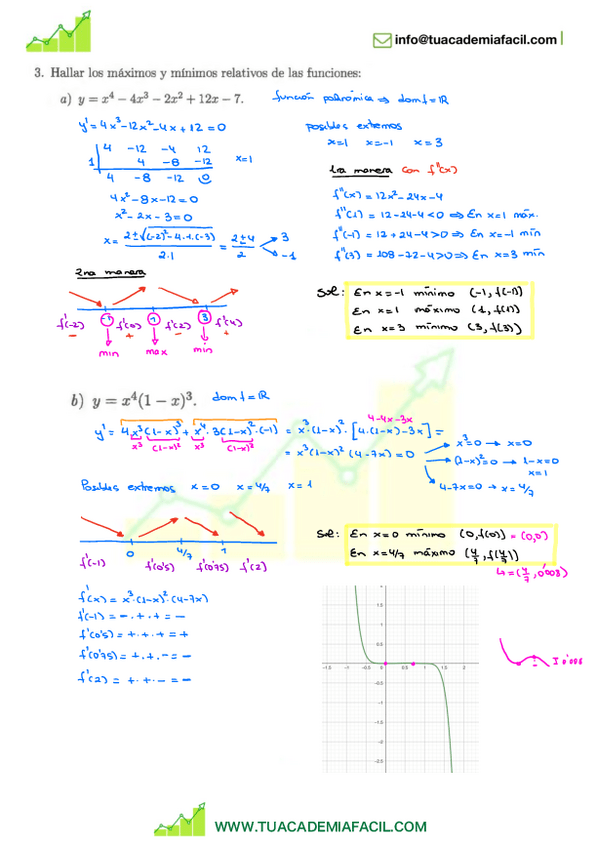 info@tuacademiafacil.com
3. Hallar los máximos y mínimos relativos de las funciones:
a) y = x⁴ − 4x³ − 2x² + 12x − 7. función polinómica ⇒ dom f = ℝ
y' = 4x³ − 12x² − 4x + 12 = 0
4 -12 -4 12
1 4 -8 -12 x=1
4 -8 -12 0
4x² − 8x − 12 = 0
x² − 2x − 3 = 0
x = (2 ± √((-2)² − 4·1·(-3))) / (2·1) = (2 ± 4) / 2 → 3
→ -1
posibles extremos
x=1 x=-1 x=3
1ra manera con f''(x)
f''(x) = 12x² − 24x − 4
f''(1) = 12 − 24 − 4 < 0 ⇒ En x=1 máx.
f''(-1) = 12 + 24 − 4 > 0 ⇒ En x=-1 mín
f''(3) = 108 − 72 − 4 > 0 ⇒ En x=3 mín
2na manera
-1 1 3
f'(-2) f'(0) f'(2) f'(4)
- + - +
min max min
Sol: En x=-1 mínimo (-1, f(-1))
En x=1 máximo (1, f(1))
En x=3 mínimo (3, f(3))
b) y = x⁴(1 − x)³. dom f = ℝ
4-4x-3x
y' = 4x³(1-x)³ + x⁴·3(1-x)²·(-1) = x³·(1-x)²·[4·(1-x)-3x] =
x³ (1-x)² x³ (1-x)²
= x³(1-x)²(4-7x) = 0
x³=0 → x=0
(1-x)²=0 → 1-x=0
x=1
4-7x=0 → x=4/7
Posibles extremos x=0 x=4/7 x=1
0 4/7 1
f'(-1) f'(0'5) f'(0'75) f'(2)
Sol: En x=0 mínimo (0,f(0)) = (0,0)
En x=4/7 máximo (4/7, f(4/7))
↳ = (4/7, 0'008)
f'(x) = x³·(1-x)²·(4-7x)
f'(-1) = -·+·+ = -
f'(0'5) = +·+·+ = +
f'(0'75) = +·+·- = -
f'(2) = +·+·- = -
1.5
1
0.5
-1.5 -1 -0.5 0 0.5 1 1.5 2
-0.5
-1
-1.5
-2
-2.5
0'008
WWW.TUACADEMIAFACIL.COM